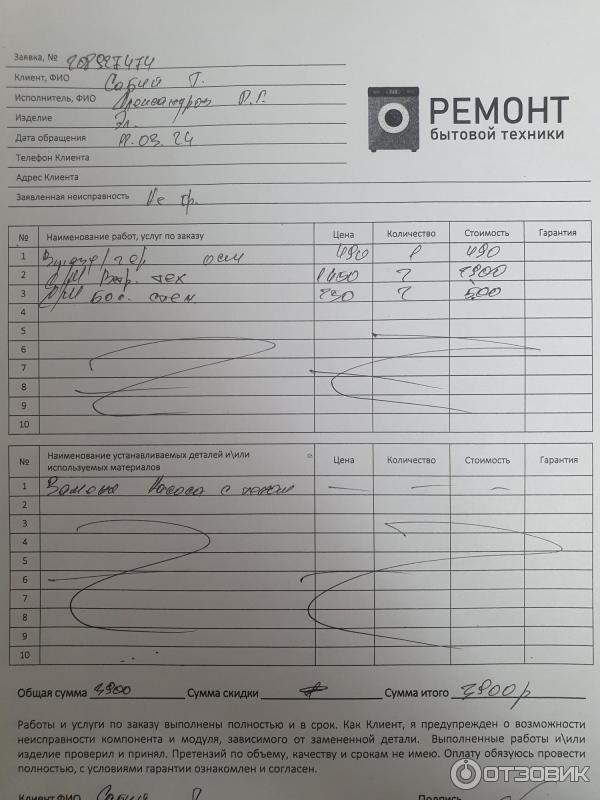 Заявка, № 208927474
Клиент, ФИО Сабий Т.
Исполнитель, ФИО Р.Г.
Изделие Эл.
РЕМОНТ
бытовой техники
Дата обращения 11.03.24
Телефон Клиента
Адрес Клиента
Заявленная неисправность Не гр.
№ Наименование работ, услуг по заказу Цена Количество Стоимость Гарантия
1 490 1 490
2 тех 1450 2 2900
3 250 2 500
4
5
6
7
8
9
10
№ Наименование устанавливаемых деталей и\или используемых материалов Цена Количество Стоимость Гарантия
1 Замена насоса с — — —
2
3
4
5
6
7
8
9
10
Общая сумма 3900 Сумма скидки Сумма итого 3900 р
Работы и услуги по заказу выполнены полностью и в срок. Как Клиент, я предупрежден о возможности
неисправности компонента и модуля, зависимого от замененной детали. Выполненные работы и\или
изделие проверил и принял. Претензий по объему, качеству и срокам не имею. Оплату обязуюсь провести
полностью, с условиями гарантии ознакомлен и согласен.
Клиент ФИО Сабий Т. Подпись
ОТЗОВИК